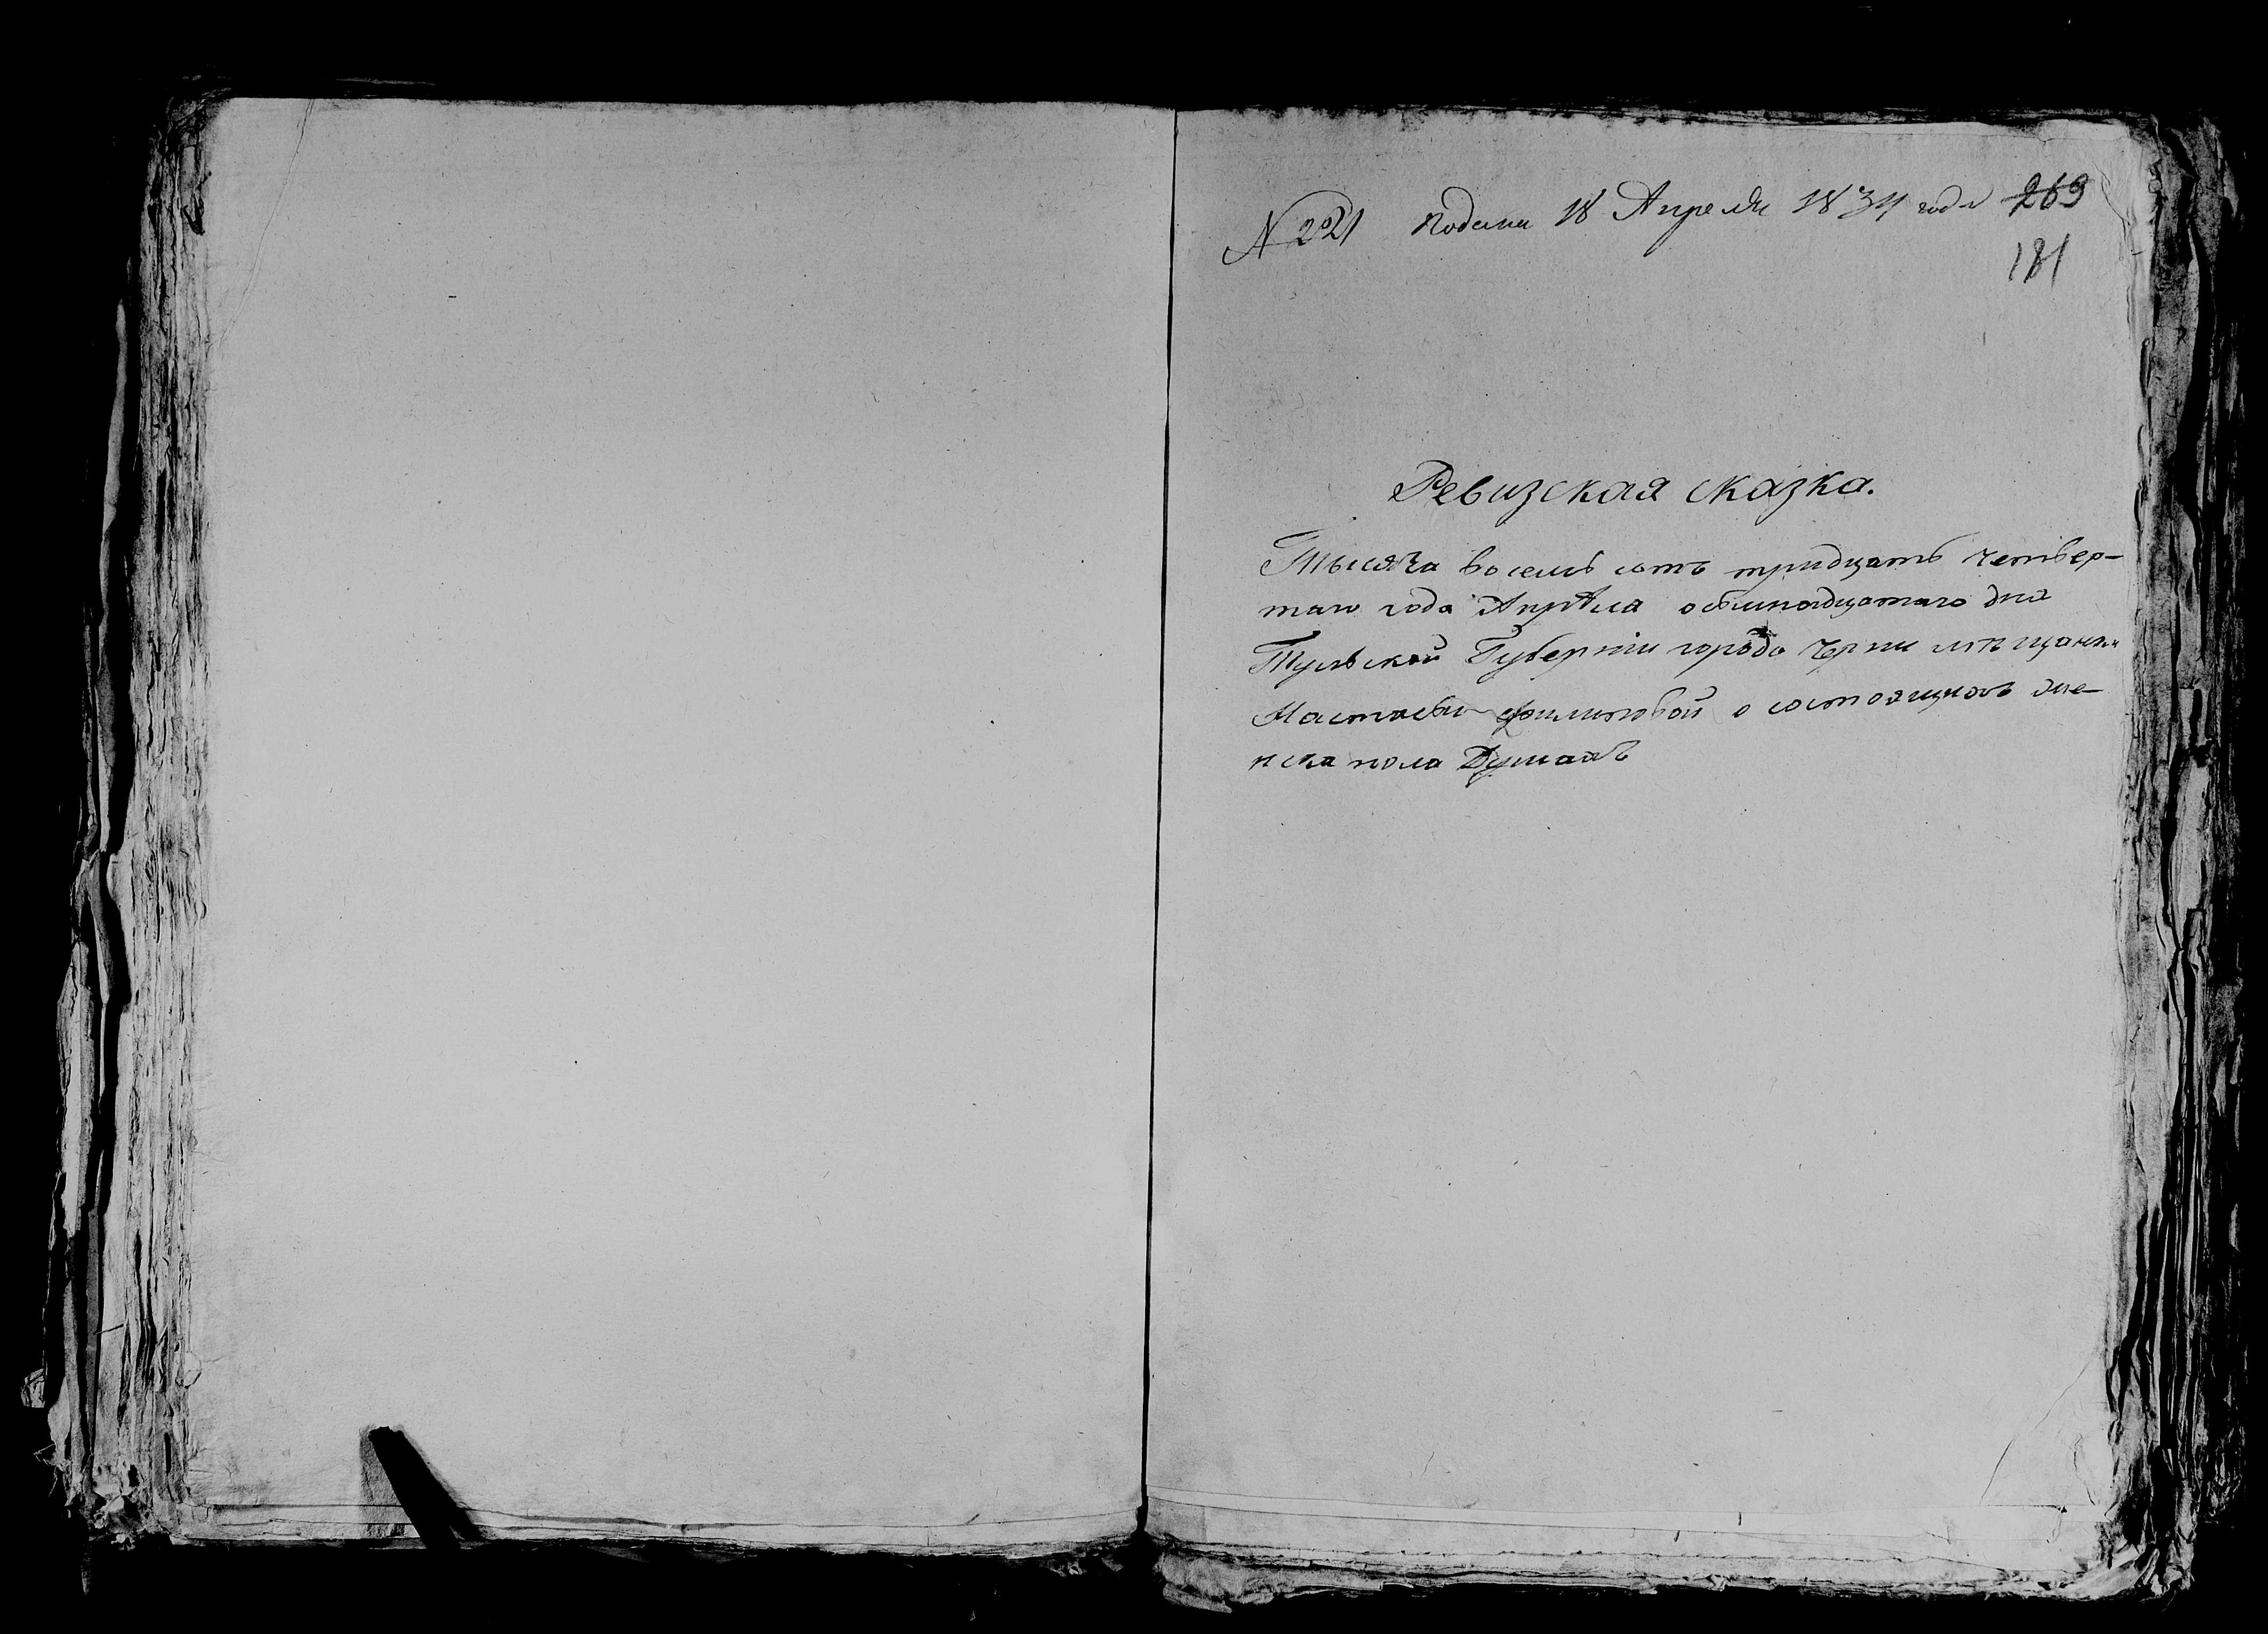 № 221 подана 18 Апреля 1834 года 269
181
Ревизская сказка.
Тысяча восемь сотъ тридцать четвер-
таго года Апреля осьмнадцатаго дня
Тульской Губернiи города Черни мѣщанки
Настасьи Филиповой о состоящихъ Же-
нска пола Душахъ